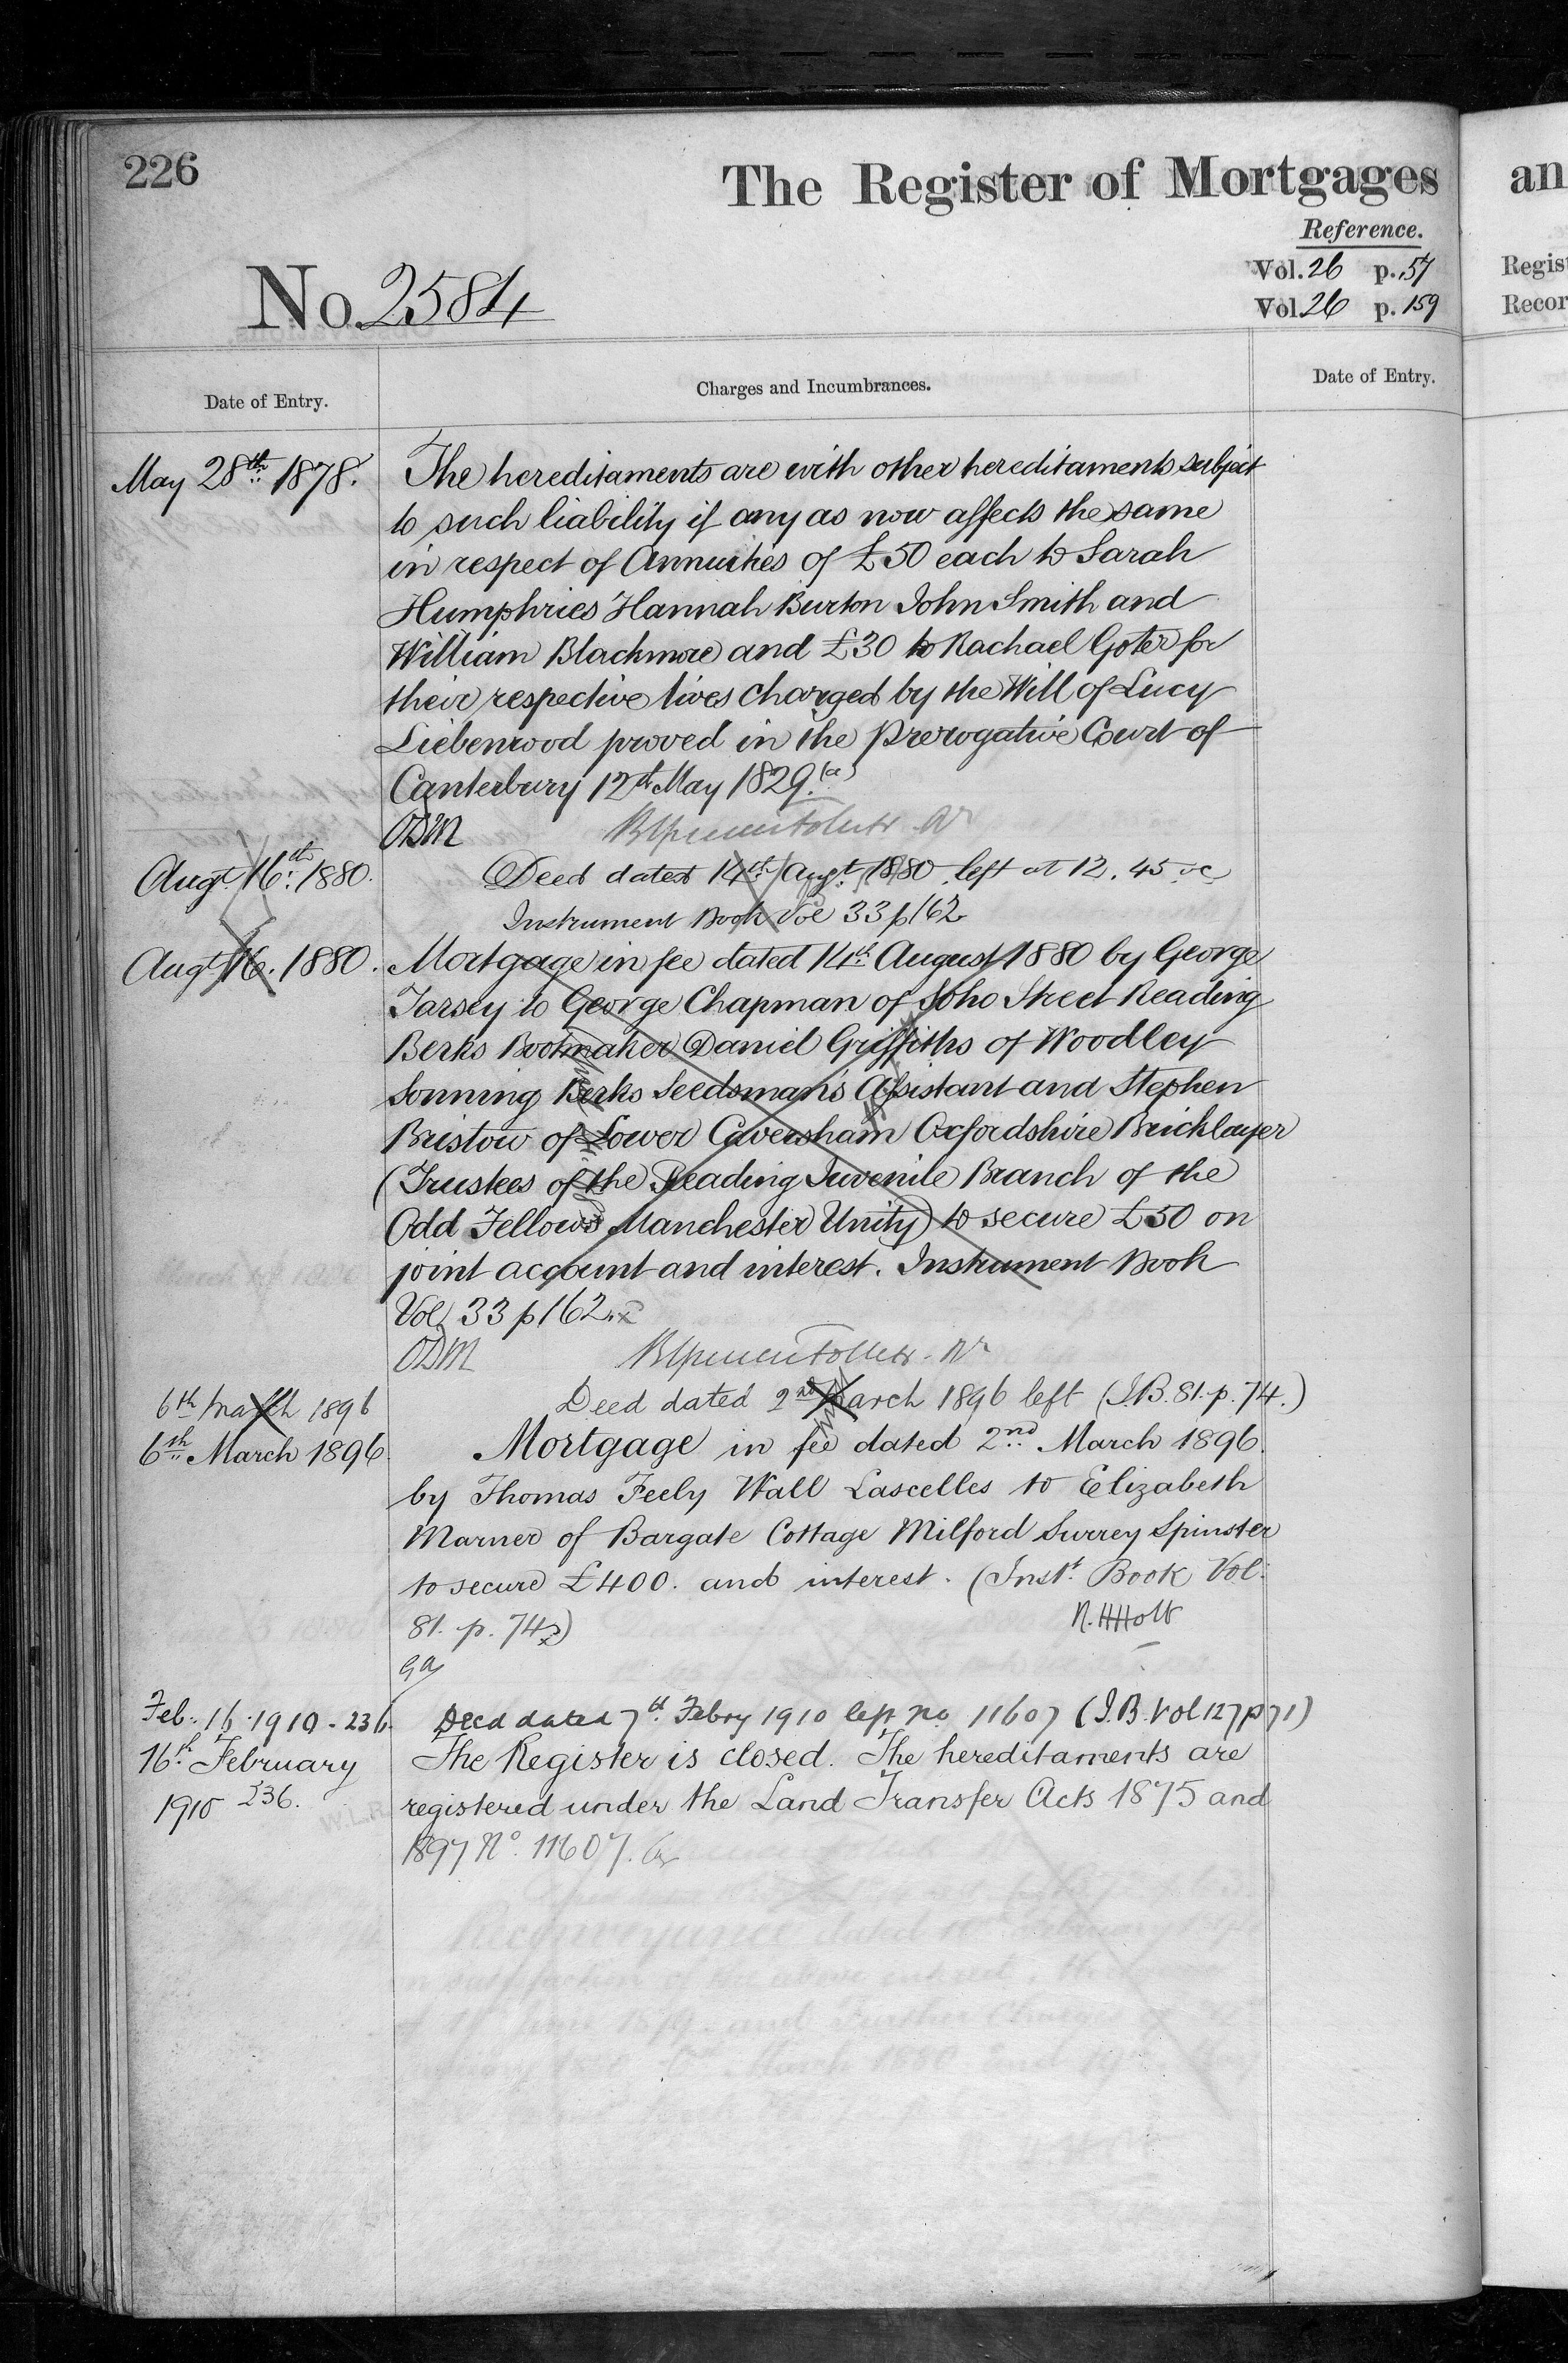 226
The Register of Mortgages
an
Reference.
Vol. 26 p. 57
Regist
No. 2584
Vol. 26 p. 159
Recor
Date of Entry.
Charges and Incumbrances.
Date of Entry.
May 28th 1878.
The hereditaments are with other hereditaments subject
to such liability if any as now affects the same
in respect of Annuities of £50 each to Sarah
Humphries Hannah Burton John Smith and
William Blackmore and £30 to Rachael Goter for
their respective lives charged by the Will of Lucy
Liebenrood proved in the Prerogative Court of
Canterbury 12th May 1829. (a)
ODM
Augt 16th 1880.
Deed dated 14th Augt 1880 left at 12.45
Instrument Book Vol 33 p 162
Augt 16. 1880.
Mortgage in fee dated 14th August 1880 by George
Tarsey to George Chapman of Soho Street Reading
Berks Bootmaker Daniel Griffiths of Woodley
Sonning Berks Seedsman's Assistant and Stephen
Bristow of Lower Caversham Oxfordshire Bricklayer
(Trustees of the Reading Juvenile Branch of the
Odd Fellows Manchester Unity) to secure £50 on
joint account and interest. Instrument Book
Vol 33 p 162.x
ODM
6th March 1896
Deed dated 2nd March 1896 left (I.B. 81. p. 74.)
6th March 1896
Mortgage in fee dated 2nd March 1896
by Thomas Feely Wall Lascelles to Elizabeth
Marner of Bargate Cottage Milford Surrey Spinster
to secure £400. and interest. (Inst. Book Vol.
81. p. 74x)
N.H.Holt
Feb. 16. 1910. 236.
Deed dated 7th Febry 1910 left No 11607 (I.B. Vol 127 p 71)
16th February
The Register is closed. The hereditaments are
1910 236.
registered under the Land Transfer Acts 1875 and
1897 No. 11607.